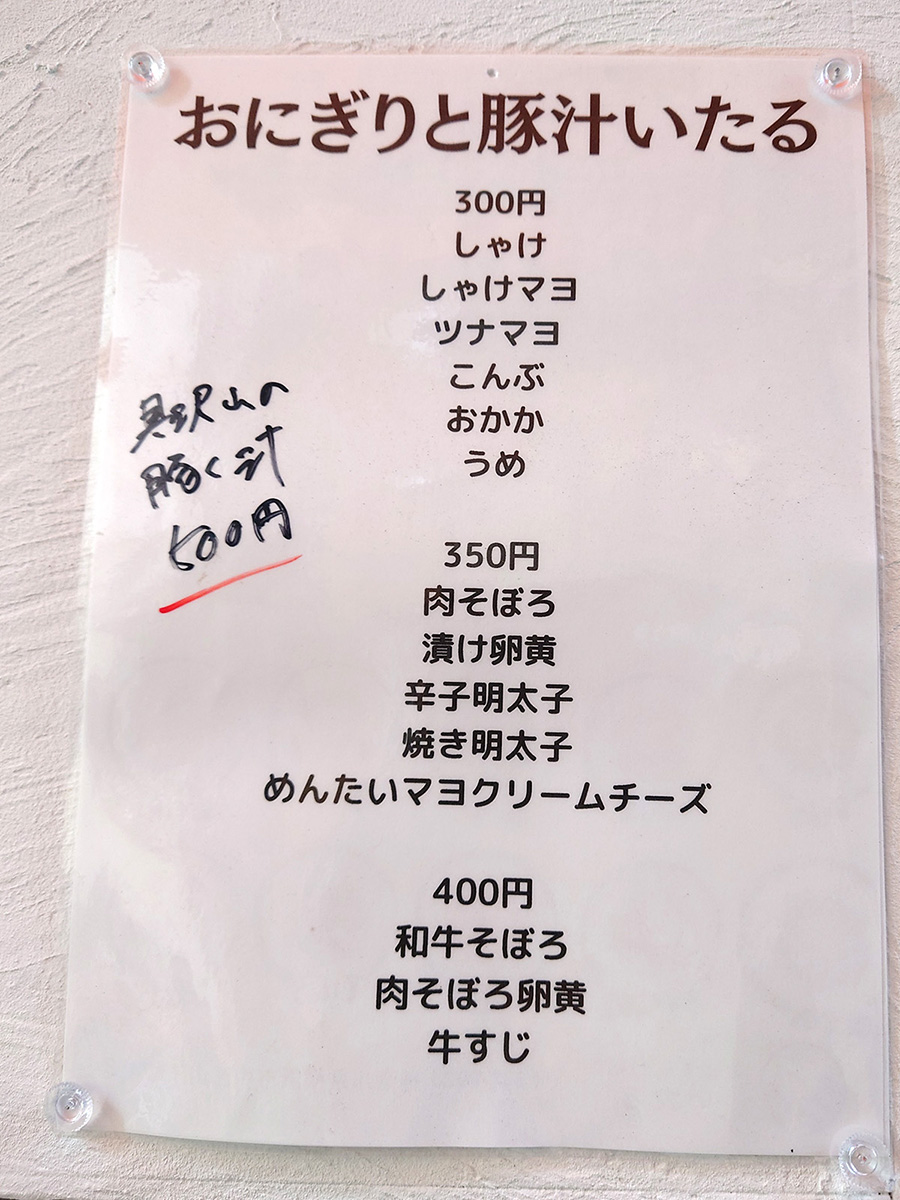 おにぎりと豚汁いたる
300円
しゃけ
しゃけマヨ
ツナマヨ
こんぶ
おかか
うめ
具沢山の
豚く汁
500円
350円
肉そぼろ
漬け卵黄
辛子明太子
焼き明太子
めんたいマヨクリームチーズ
400円
和牛そぼろ
肉そぼろ卵黄
牛すじ